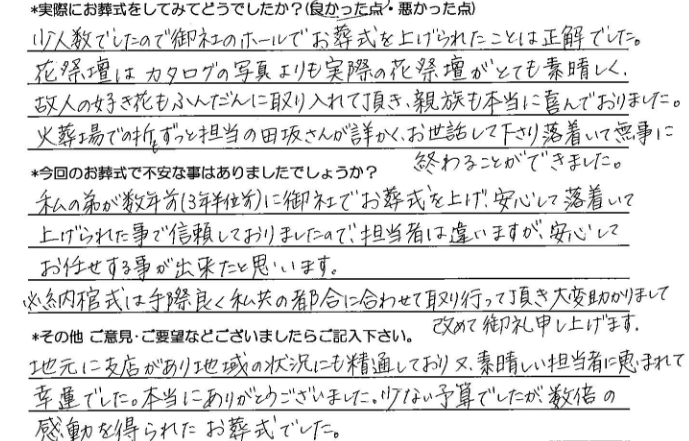 *実際にお葬式をしてみてどうでしたか？(良かった点・悪かった点)
少人数でしたので御社のホールでお葬式を上げられたことは正解でした。
花祭壇はカタログの写真よりも実際の花祭壇がとても素晴しく、
故人の好き花もふんだんに取り入れて頂き、親族も本当に喜んでおりました。
火葬場での折もずっと担当の田坂さんが詳かく、お世話して下さり落着いて無事に
終わることができました。
*今回のお葬式で不安な事はありましたでしょうか？
私の弟が数年前(3年半位前)に御社でお葬式を上げ、安心して落着いて
上げられた事で信頼しておりましたので、担当者は違いますが、安心して
お任せする事が出来たと思います。
※納棺式は手際良く私共の都合に合わせて取り行って頂き大変助かりまして
改めて御礼申し上げます.
*その他 ご意見・ご要望などございましたらご記入下さい。
地元に支店があり地域の状況にも精通しており又、素晴しい担当者に恵まれて
幸運でした。本当にありがとうございました。少ない予算でしたが、数倍の
感動を得られたお葬式でした。